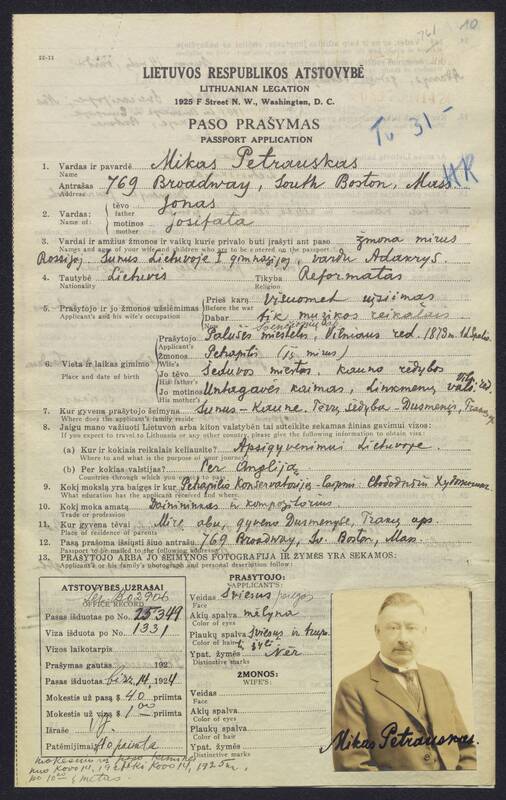 22-11
761
10
LIETUVOS RESPUBLIKOS ATSTOVYBĖ
LITHUANIAN LEGATION
1925 F Street N. W., Washington, D. C.
PASO PRAŠYMAS
PASSPORT APPLICATION
Tu 31 —
HR
1. Vardas ir pavardė Mikas Petrauskas
Name
Antrašas 769 Broadway, South Boston, Mass
Address
2. Vardas: tėvo Jonas
Name of: father
motinos Josifata
mother
3. Vardai ir amžius žmonos ir vaikų kurie privalo būti įrašyti ant paso žmona mirus
Names and ages of your wife and children who are to be entered on the passport
Rossijoj. Sunus Lietuvoje I gimnazijoj, vardu
4. Tautybė Lietuvis Tikyba Reformatas
Nationality Religion
5. Prašytojo ir jo žmonos užsiėmimas Prieš karą Visuomet užsiimas
Applicant's and his wife's occupation Before the war
Dabar tik muzikos reikalais
Now
6. Vieta ir laikas gimimo
Place and date of birth
Prašytojo Palušės miestelis, Vilniaus red. 1873 m.
Applicant's
Žmonos Petrapilis (mirus)
Wife's
Jo tėvo Šeduvos miestas, Kauno rėdybos
His father's
Jo motinos kaimas, Linkmenų vals.
His mother's
7. Kur gyvena prašytojo šeimyna Sunus - Kaune. Tėvų Sėdyba - Dusmenys,
Where does the applicant's family reside
8. Jaigu mano važiuoti Lietuvon arba kiton valstybėn tai suteikite sekamas žinias gavimui vizos:
If you expect to travel to Lithuania or any other country, please give the following information to obtain visa:
(a) Kur ir kokiais reikalais keliausite? Apsigyvenimui Lietuvoje
Where to and what is the purpose of your journey
(b) Per kokias valstijas? Per Angliją
Countries through which you expect to pass
9. Kokį mokslą yra baigęs ir kur Petrapilio Konservatoriją -
What education has the applicant received and where
10. Kokį moka amatą Dainininkas ir kompozitorius
Trade or profession
11. Kur gyvena tėvai Mirę abu, gyveno Dusmenyse, Trakų aps.
Place of residence of parents
12. Pasą prašoma išsiųsti šiuo antrašu 769 Broadway, So. Boston, Mass.
Passport to be mailed to the following address
13. PRAŠYTOJO ARBA JO ŠEIMYNOS FOTOGRAFIJA IR ŽYMĖS YRA SEKAMOS:
Applicant's or his family's photograph and personal description follow:
ATSTOVYBĖS UŽRAŠAI
OFFICE RECORD
Pasas išduotas po No. 25349
Viza išduota po No. 1331
Vizos laikotarpis
Prašymas gautas 192
Pasas išduotas 14, 1924
Mokestis už pasą $ 40 priimta
Mokestis už vizą $ 1.00 priimta
Išrašė
Patėmijimai $10 priimta
PRAŠYTOJO:
APPLICANT'S:
Veidas Šviesus
Face
Akių spalva mėlyna
Color of eyes
Plaukų spalva šviesus ir
Color of hair
Ypat. žymės Nėr
Distinctive marks
ŽMONOS:
WIFE'S:
Veidas
Face
Akių spalva
Color of eyes
Plaukų spalva
Color of hair
Ypat. žymės
Distinctive marks
Mikas Petrauskas.